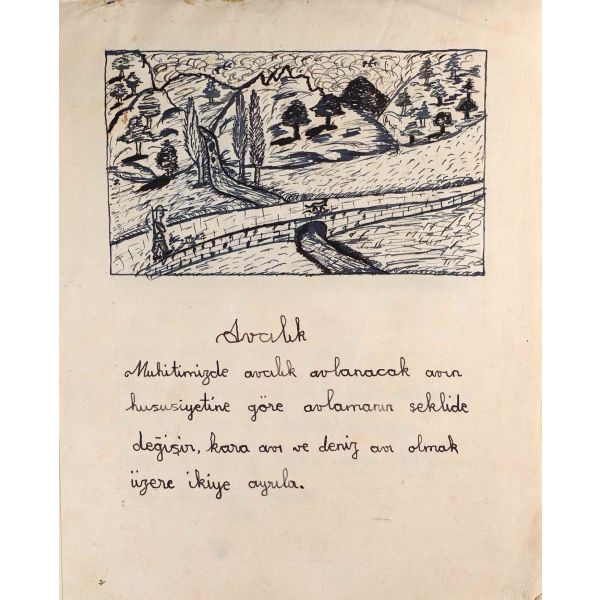 Avcılık
Muhitimizde avcılık avlanacak avın
hususiyetine göre avlamanın şeklide
değişir, kara avı ve deniz avı olmak
üzere ikiye ayrıla.